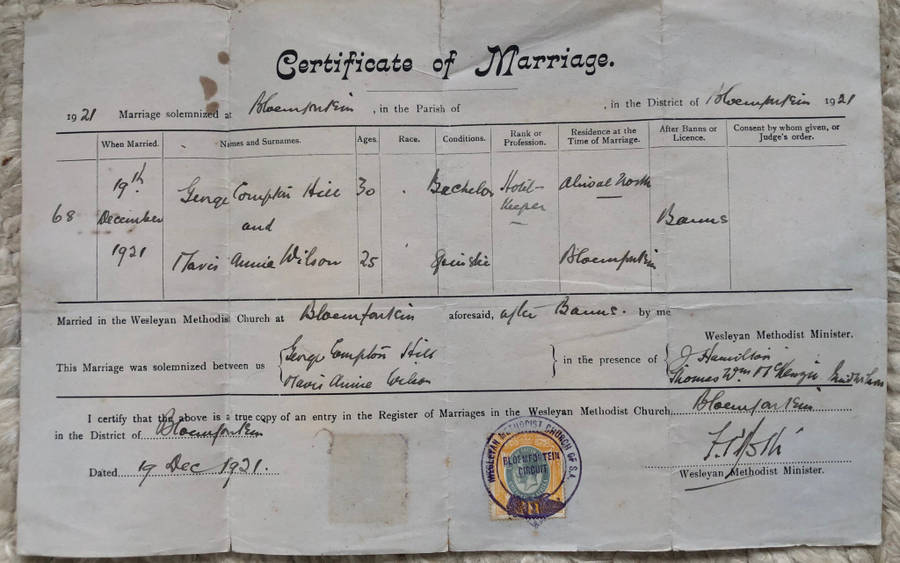 Certificate of Marriage.
1921 Marriage solemnized at Bloemfontein , in the Parish of , in the District of Bloemfontein 1921
When Married. Names and Surnames. Ages. Race. Conditions. Rank or Profession. Residence at the Time of Marriage. After Banns or Licence. Consent by whom given, or Judge's order.
19th George Compton Hill 30 Bachelor Hotel-Keeper Aliwal North
68 December and Banns
1921 Mavis Annie Wilson 25 Spinster Bloemfontein
Married in the Wesleyan Methodist Church at Bloemfontein aforesaid, after Banns. by me
Wesleyan Methodist Minister.
This Marriage was solemnized between us { George Compton Hill } in the presence of { J Hamilton
Mavis Annie Wilson Thomas Wm McKenzie
I certify that the above is a true copy of an entry in the Register of Marriages in the Wesleyan Methodist Church, Bloemfontein
in the District of Bloemfontein
Dated 19 Dec 1921.
Wesleyan Methodist Minister.
WESLEYAN METHODIST CHURCH OF S.A.
BLOEMFONTEIN
CIRCUIT